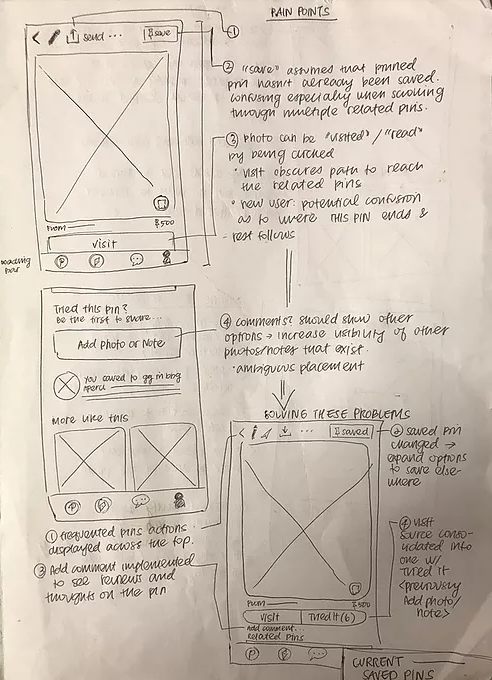 PAIN POINTS
send ...
save
①
② "save" assumes that pinned
pin hasn't already been saved.
confusing especially when scrolling
through multiple related pins.
③ photo can be "visited"/"read"
by being clicked
• visit obscures path to reach
the related pins
• new user: potential confusion
as to where THIS PIN ends &
rest follows
From
$500
visit
bar
Tried this pin?
Be the first to share...
Add photo or Note
you saved to
More like this
④ comments? should show other
options → increase visibility of other
photos/notes that exist.
• ambiguous placement
SOLVING THESE PROBLEMS
...
saved
② saved pin
changed →
expand options
to save else-
where
① frequented pins actions
displayed across the top.
③ Add comment implemented
to see reviews and
thoughts on the pin
④ visit
source conso-
lidated into
one w/
Tried it
<previously
Add photo/
note>
From
$500
visit
Tried it (6)
Add comment.
Related Pins
CURRENT
SAVED PINS